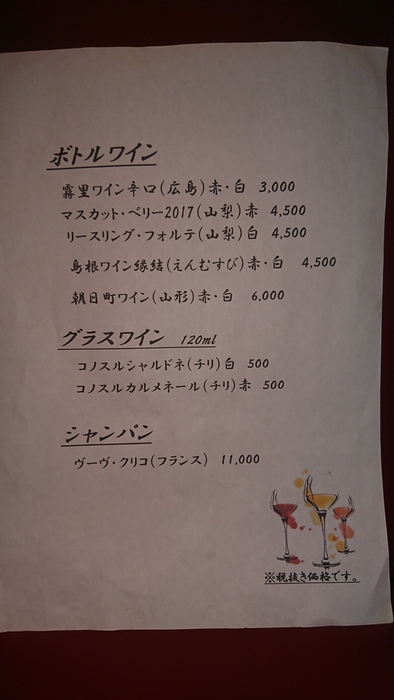 ボトルワイン
霧里ワイン辛口(広島)赤・白 3,000
マスカット・ベリー2017(山梨)赤 4,500
リースリング・フォルテ(山梨)白 4,500
島根ワイン縁結(えんむすび)赤・白 4,500
朝日町ワイン(山形)赤・白 6,000
グラスワイン 120ml
コノスルシャルドネ(チリ)白 500
コノスルカルメネール(チリ)赤 500
シャンパン
ヴーヴ・クリコ(フランス) 11,000
※税抜き価格です。